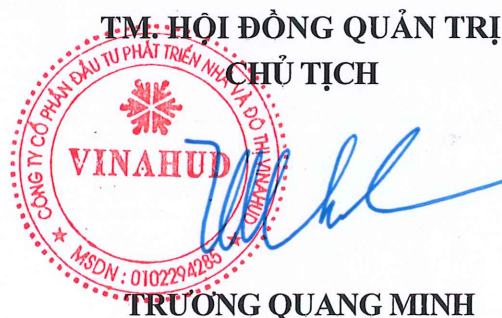 TM. HỘI ĐỒNG QUẢN TRỊ
CHỦ TỊCH
CÔNG TY CỔ PHẦN ĐẦU TƯ PHÁT TRIỂN NHÀ VÀ ĐÔ THỊ VINAHUD
VINAHUD
MSDN : 0102294285
TRƯƠNG QUANG MINH